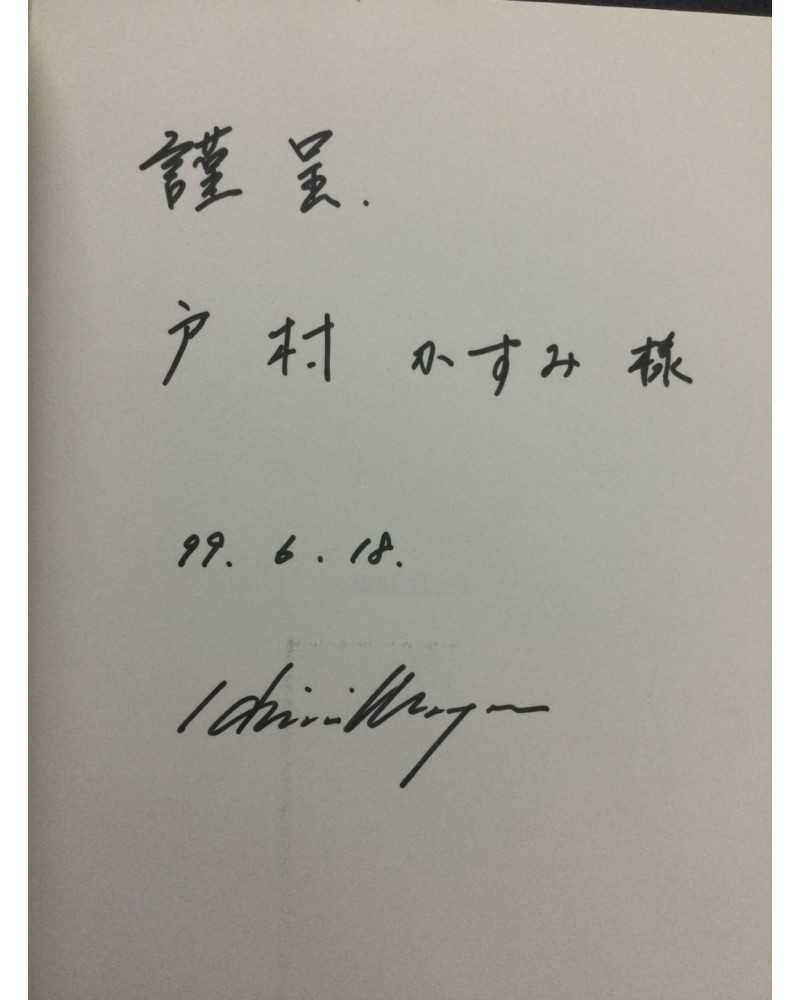 謹呈.
戸村かすみ様
99.6.18.